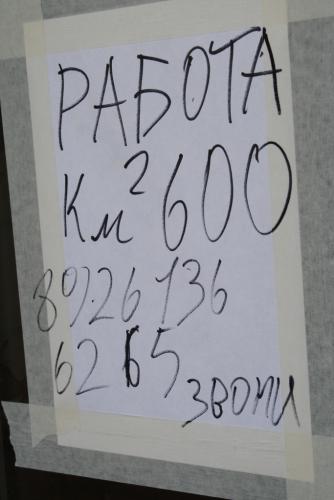 РАБОТА
Км² 600
8926 136
62 65
ЗВОНИ